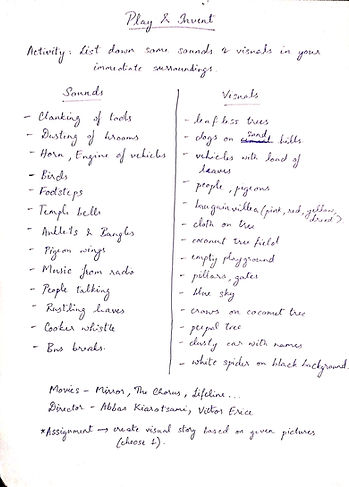 Play & Invent
Activity: List down some sounds & visuals in your
immediate surroundings.
Sounds
- Clanking of tools
- Dusting of brooms
- Horn, Engine of vehicles
- Birds
- Footsteps
- Temple bells
- Anklets & Bangles
- Pigeon wings
- Music from radio
- People talking
- Rustling leaves
- Cooker whistle
- Bus breaks.
Visuals
- leafless trees
- dogs on sand hills
- vehicles with load of
leaves
- people, pigeons
- bougainvillea (pink, red, yellow,
dried)
- cloth on tree
- coconut tree field
- empty playground
- pillars, gates
- blue sky
- crows on coconut tree
- peepal tree
- dusty car with names
- white spider on black background.
Movies - Mirror, The Chorus, Lifeline...
Director - Abbas Kiarostami, Victor Erice
*Assignment → create visual story based on given pictures
(choose 1).